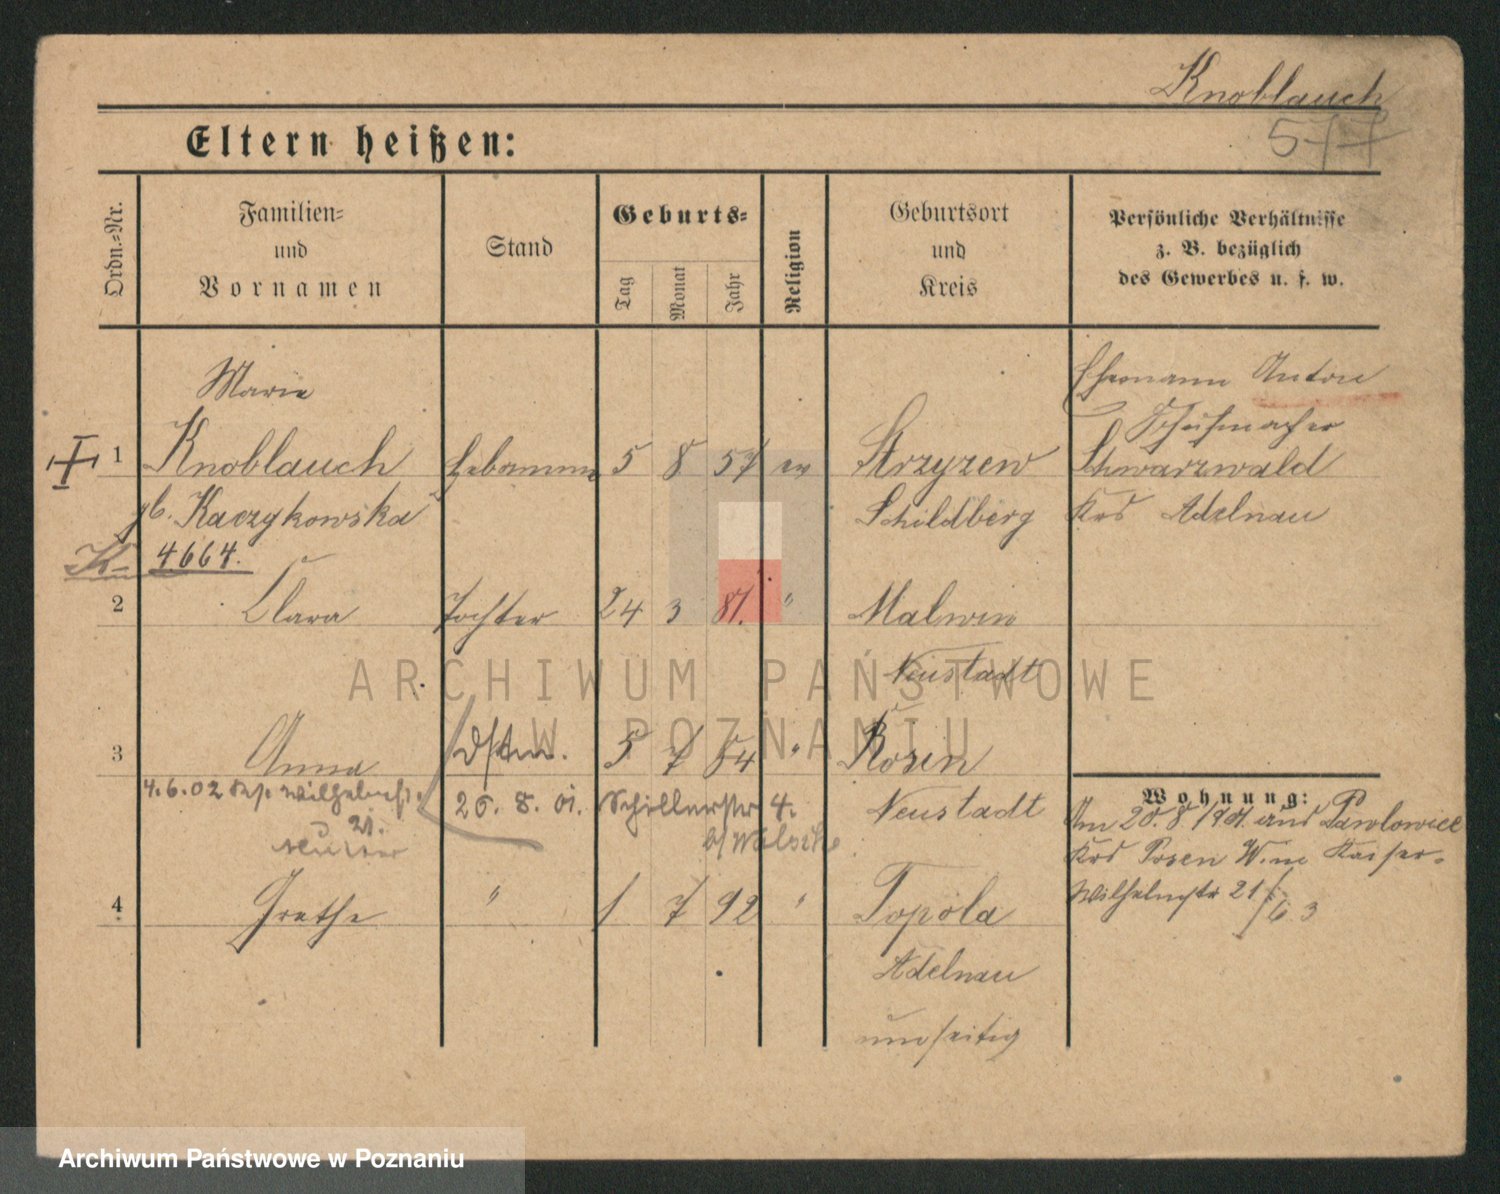 Knoblauch
577
Eltern heißen:
Ordn.-Nr.
Familien-
und
Vornamen
Stand
Geburts-
Tag
Monat
Jahr
Religion
Geburtsort
und
Kreis
Persönliche Verhältnisse
z. B. bezüglich
des Gewerbes u. s. w.
Marie
Ehemann Anton
Schuhmacher
1 Knoblauch Hebamme 5 8 57 ev Strzyzew Schwarzwald
gb. Kaczykowska Schildberg Krs Adelnau
K 4664.
2 Clara Tochter 24 3 87. " Malwin
Neustadt
3 Anna 5 7 84 " Rosen
Wohnung:
4.6.02 Wilhelmstr. 26. 8. 01. Schillerstr 4. Neustadt
21.
Am 20.8.1901 aus Pawlowice
Krs Posen W. Kaiser-
Wilhelmstr 21 / 6 3
4 Grethe " 1 7 92 " Topola
Adelnau
umseitig
ARCHIWUM PAŃSTWOWE
W POZNANIU
Archiwum Państwowe w Poznaniu